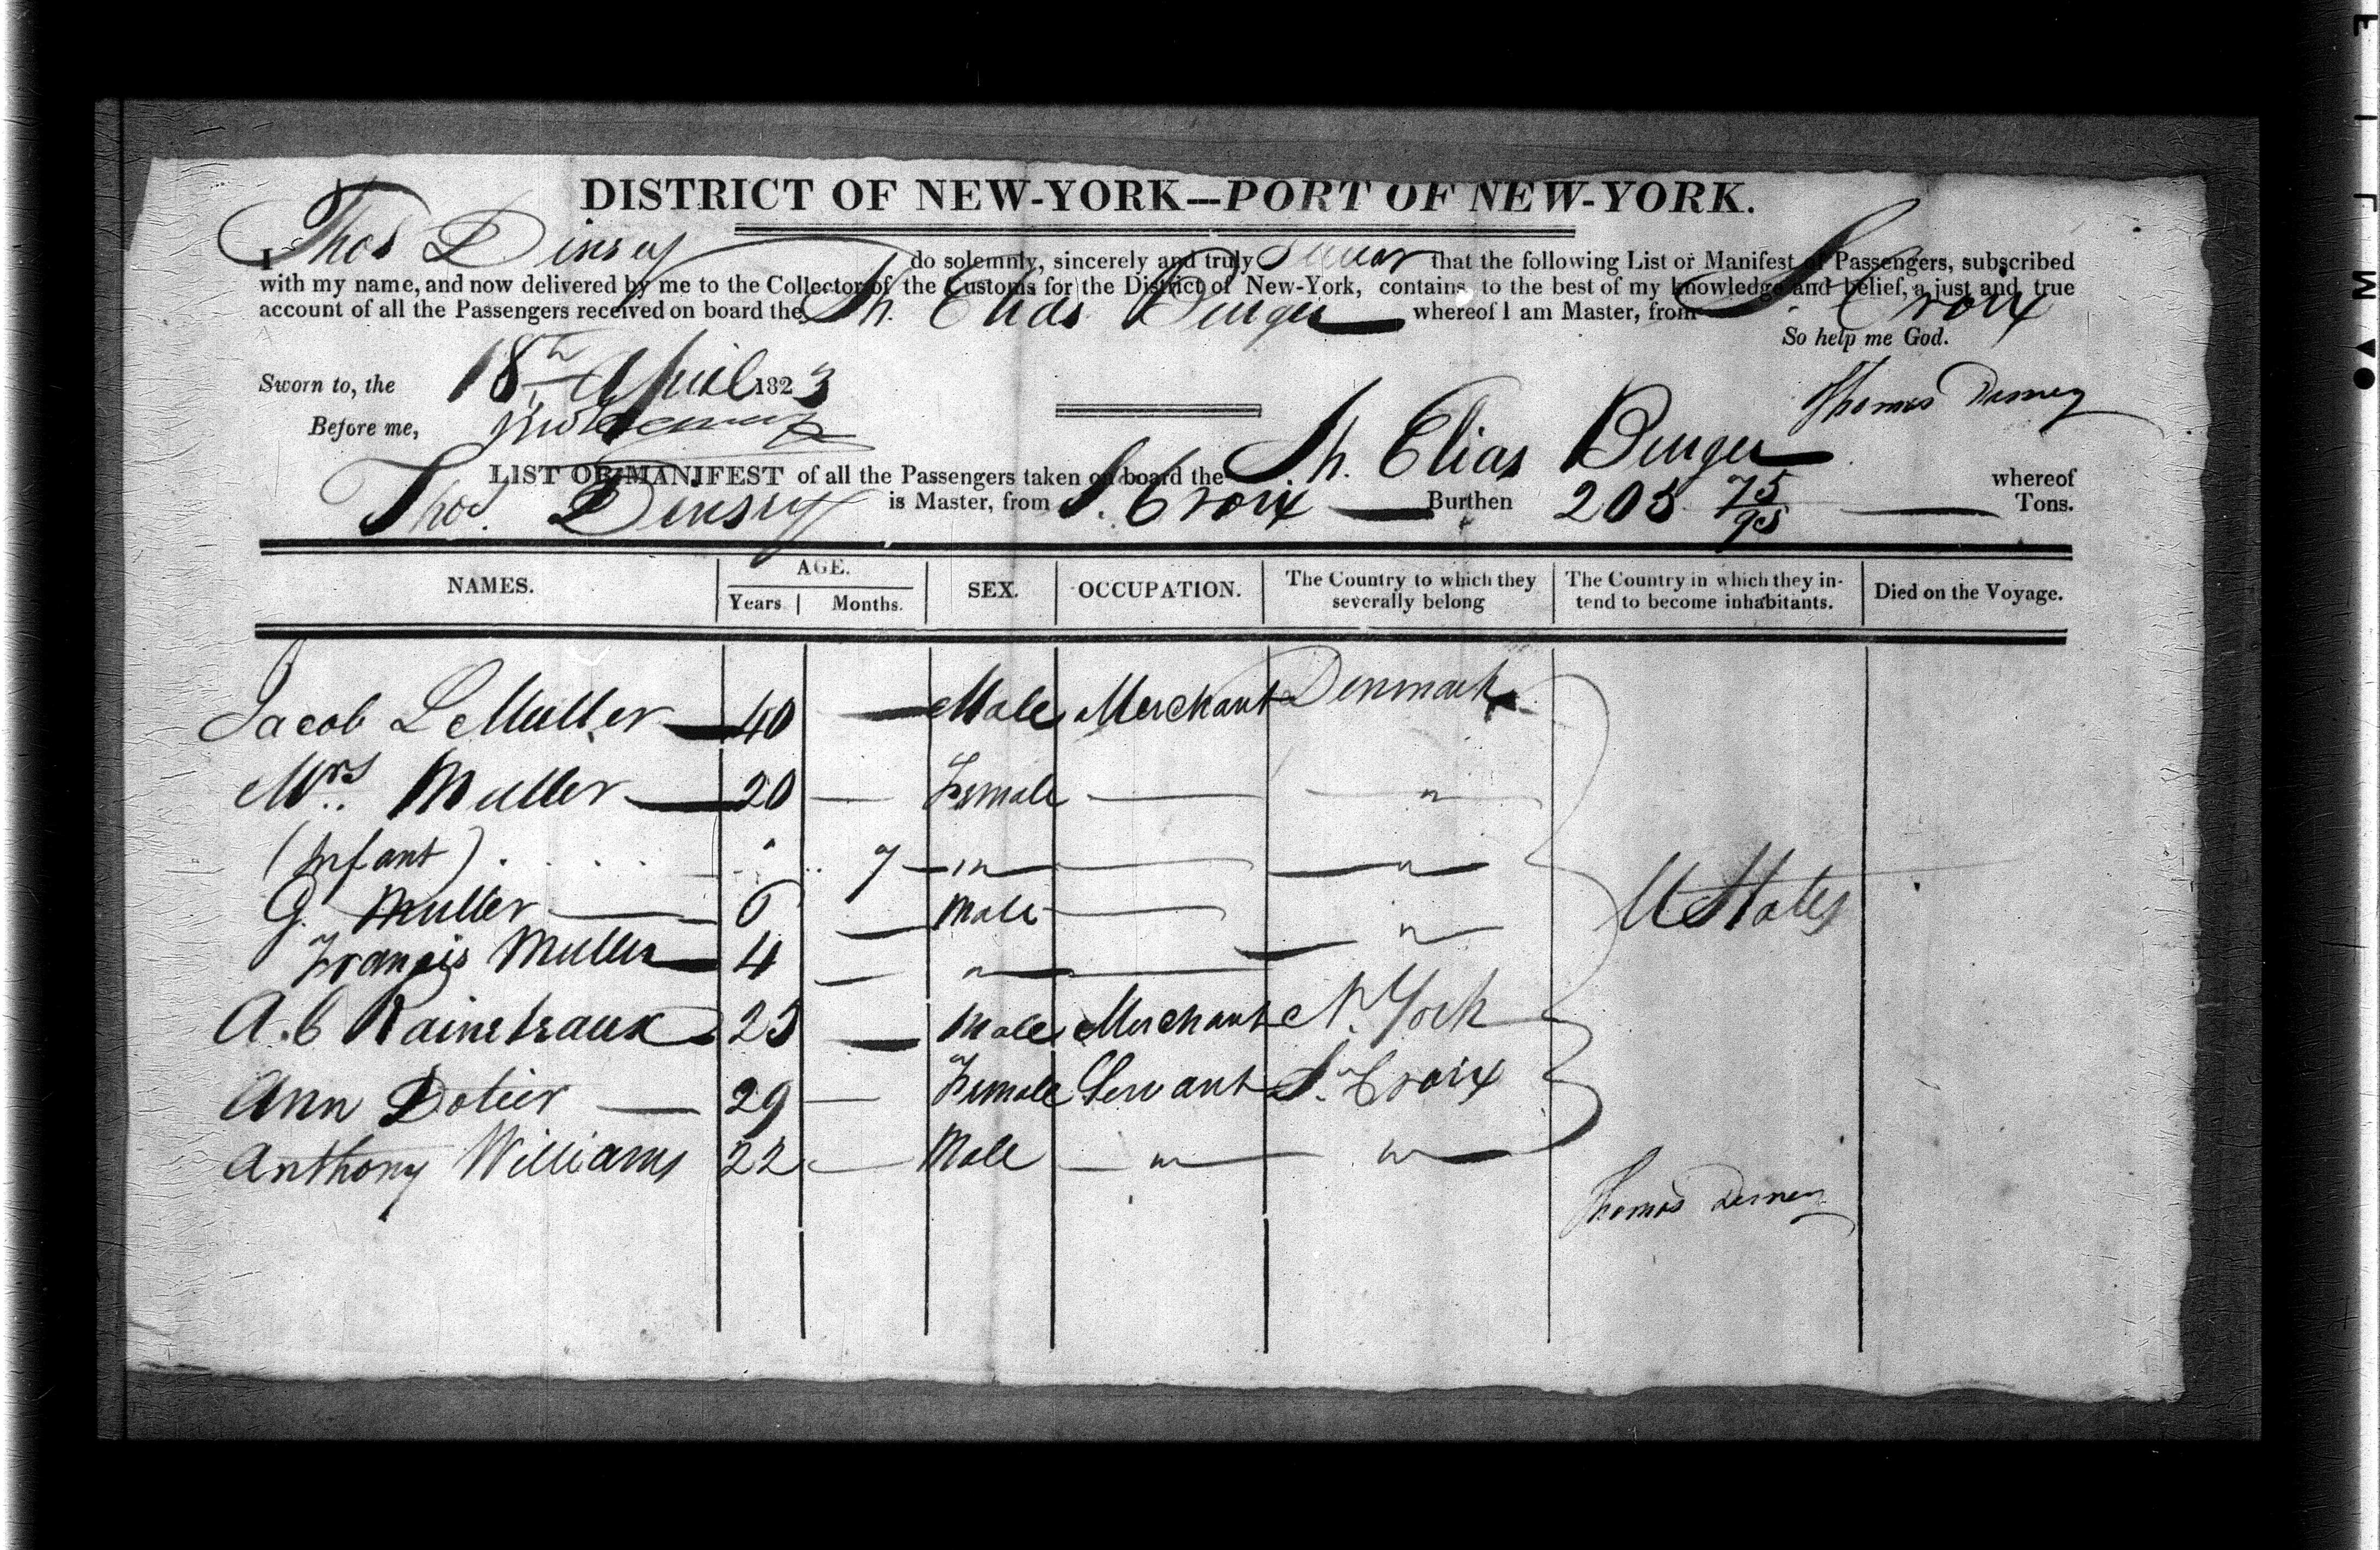 DISTRICT OF NEW-YORK—PORT OF NEW-YORK.
I Thos Dinsey do solemnly, sincerely and truly Swear that the following List or Manifest of Passengers, subscribed
with my name, and now delivered by me to the Collector of the Customs for the District of New-York, contains, to the best of my knowledge and belief, a just and true
account of all the Passengers received on board the Sh. Elias Burger whereof I am Master, from St Croix
So help me God.
Sworn to, the 18th April 1823
Thomas
Before me,
LIST OR MANIFEST of all the Passengers taken on board the Sh. Elias Burger whereof
Thos. Dinsey is Master, from St. Croix Burthen 205 75/95 Tons.
NAMES. AGE. SEX. OCCUPATION. The Country to which they severally belong The Country in which they intend to become inhabitants. Died on the Voyage.
Years Months.
Jacob L Muller 40 — Male Merchant Denmark
Mrs. Muller 20 — Female — "
(Infant) 7 — " — "
G. Muller 6 — Male — "
U States
Francis Muller 4 — " —
A. C 25 — Male Merchant N. York
Ann 29 — Female Servant St. Croix
Anthony Williams 22 — Male — " — "
Thomas